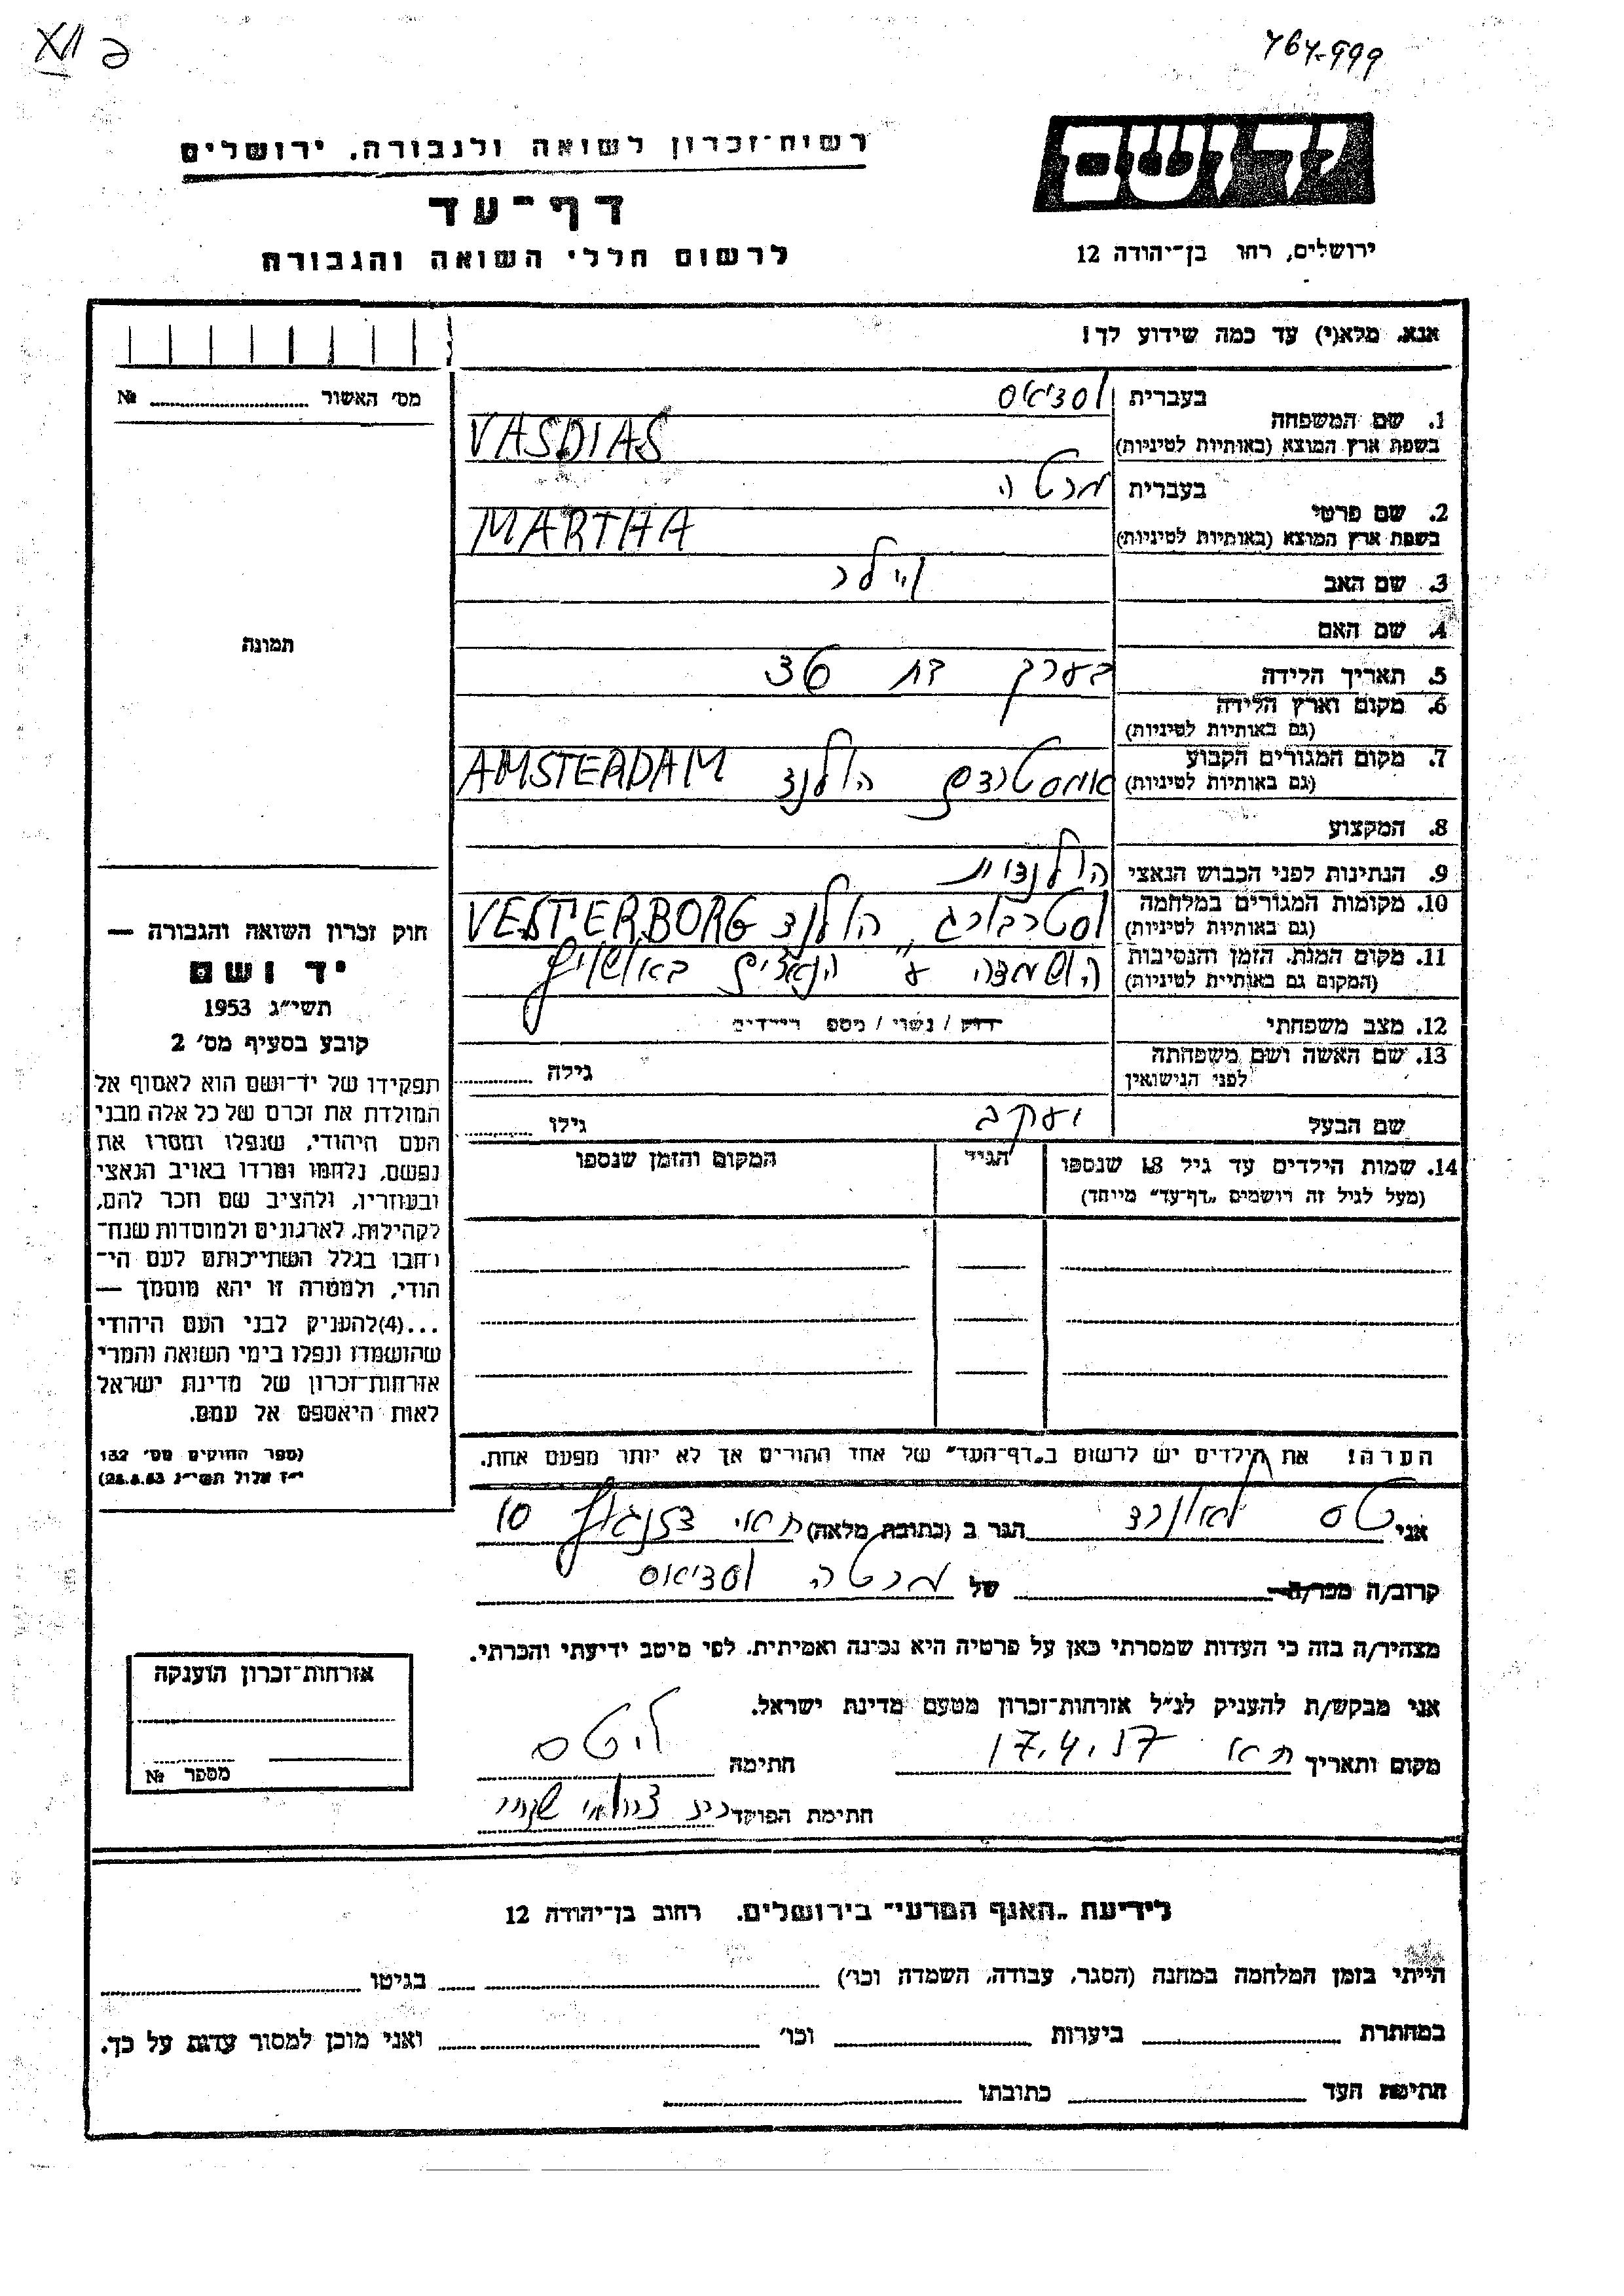 764-999
רשות־זכרון לשואה ולגבורה, ירושלים
דף־עד
לרשום חללי השואה והגבורה
יד ושם
ירושלים, רחו בן־יהודה 12
אנא, מלא(י) עד כמה שידוע לך!
מס׳ האשור № 
תמונה
חוק זכרון השואה והגבורה —
יד ושם
תשי״ג 1953
קובע בסעיף מס׳ 2
תפקידו של יד־ושם הוא לאסוף אל
המולדת את זכרם של כל אלה מבני
העם היהודי, שנפלו ומסרו את
נפשם, נלחמו ומרדו באויב הנאצי
ובעוזריו, ולהציב שם וזכר להם,
לקהילות, לארגונים ולמוסדות שנח־
רבו בגלל השתייכותם לעם הי־
הודי, ולמטרה זו יהא מוסמך —
...(4)להעניק לבני העם היהודי
שהושמדו ונפלו בימי השואה והמרי
אזרחות־זכרון של מדינת ישראל
לאות היאספם אל עמם.
(ספר החוקים מס׳ 132
י״ז אלול תשי״ג 28.8.53)
1. שם המשפחה
בעברית וסדיאס
בשפת ארץ המוצא (באותיות לטיניות) VASDIAS
2. שם פרטי
בעברית מרטה
בשפת ארץ המוצא (באותיות לטיניות) MARTHA
3. שם האב
4. שם האם
5. תאריך הלידה בערך בת 36
6. מקום וארץ הלידה
(גם באותיות לטיניות)
7. מקום המגורים הקבוע אמסטרדם הולנד AMSTERDAM
(גם באותיות לטיניות)
8. המקצוע
9. הנתינות לפני הכבוש הנאצי הולנדית
10. מקומות המגורים במלחמה וסטרבורג הולנד VESTERBORG
(גם באותיות לטיניות)
11. מקום המות, הזמן והנסיבות הושמדה ע״ הנאצים באושויץ
(המקום גם באותיות לטיניות)
12. מצב משפחתי רווק / נשוי / מספ הילדים
13. שם האשה ושם משפחתה
לפני הנישואין
גילה
שם הבעל יעקב גילו
14. שמות הילדים עד גיל 18 שנספו הגיל המקום והזמן שנספו
(מעל לגיל זה רושמים „דף־עד״ מיוחד)
הערה! את הילדים יש לרשום ב„דף־העד״ של אחד ההורים אך לא יותר מפעם אחת.
אני טס לאונרד הגר ב (כתובת מלאה) דיזנגוף 10
קרוב/ה מכר/ה של מרטה וסדיאס
מצהיר/ה בזה כי העדות שמסרתי כאן על פרטיה היא נכונה ואמיתית, לפי מיטב ידיעתי והכרתי.
אני מבקש/ת להעניק לנ״ל אזרחות־זכרון מטעם מדינת ישראל.
מקום ותאריך ת״א 17.4.57 חתימה ל. טס
חתימת הפוקד
אזרחות־זכרון הוענקה
מספר №
לידיעת „האגף המדעי״ בירושלים, רחוב בן־יהודה 12
הייתי בזמן המלחמה במחנה (הסגר, עבודה, השמדה וכו׳) בגיטו
במחתרת ביערות וכו׳ ואני מוכן למסור עדות על כך.
חתימת העד כתובתו